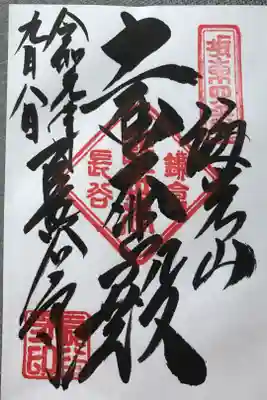 坂東第四番
海光山
十一面大悲殿
鎌倉
長谷
長谷寺
令和元年
九月八日
長谷寺印